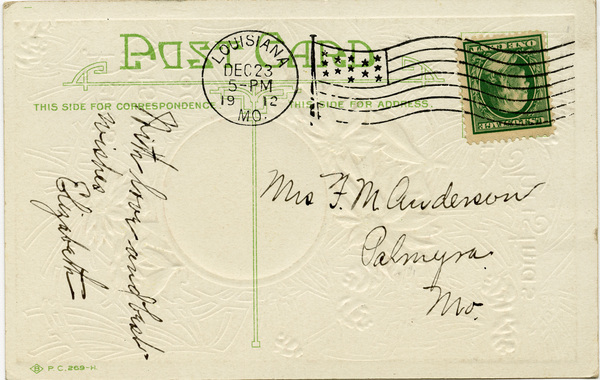 POST CARD
LOUISIANA
DEC 23
5-PM
19 12
MO.
THIS SIDE FOR CORRESPONDENCE
THIS SIDE FOR ADDRESS.
With love and best
wishes
Elizabeth
Mrs F. M. Anderson
Palmyra
Mo.
P.C. 269-K